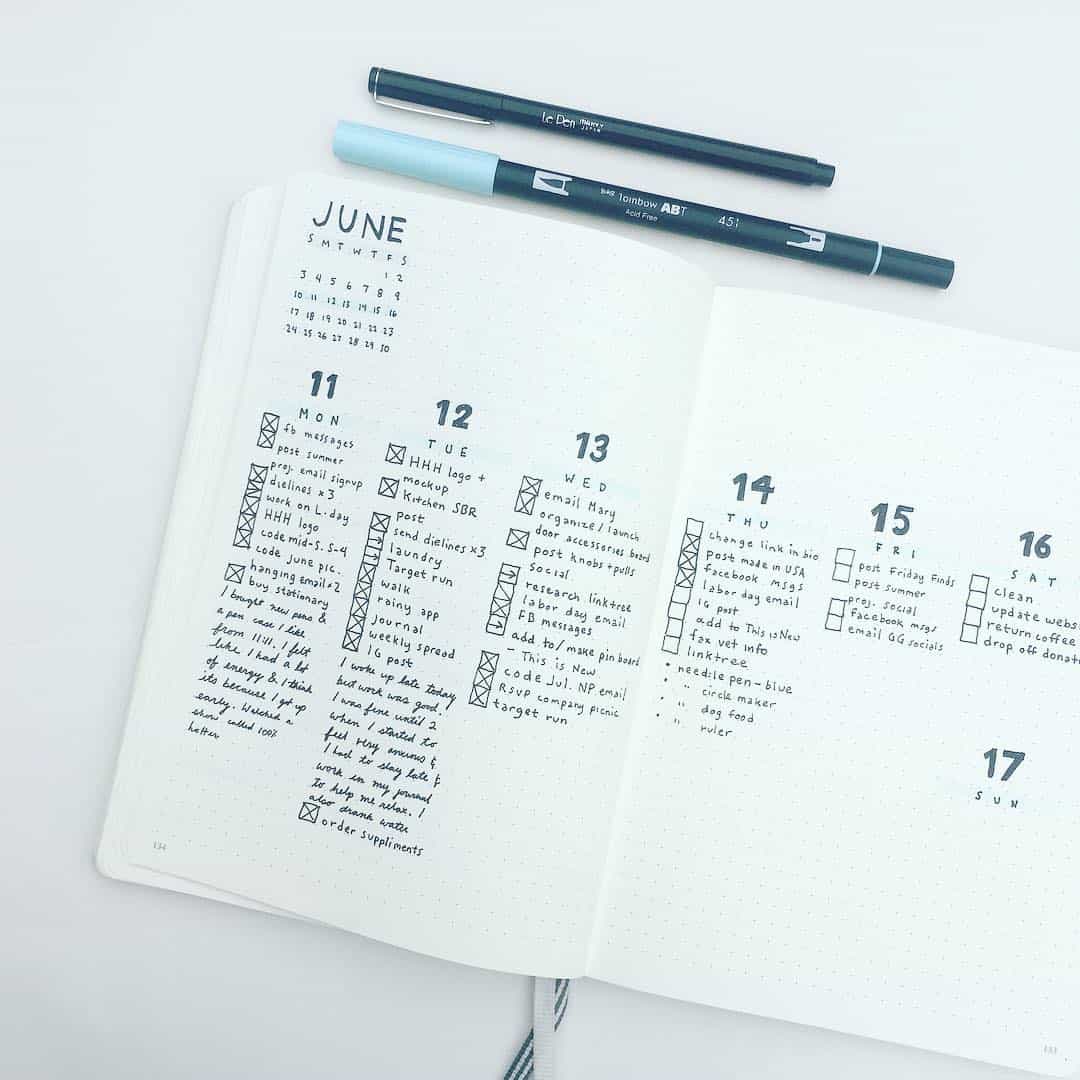 Le Pen MARVY JAPAN
Tombow ABT
Acid Free
451
JUNE
S M T W T F S
1 2
3 4 5 6 7 8 9
10 11 12 13 14 15 16
17 18 19 20 21 22 23
24 25 26 27 28 29 30
11
MON
fb messages
post summer
proj. email signup
dielines x3
work on L. day
HHH logo
code mid-s. s-4
code June pic.
hanging email x2
buy stationary
I bought new pens &
a pen case I like
from 11:11. I felt
like I had a lot
of energy & I think
its because I got up
early. Watched a
show called 100%
hotter
12
TUE
HHH logo +
mockup
Kitchen SBR
post
send dielines x3
laundry
Target run
walk
rainy app
journal
weekly spread
IG post
I woke up late today
but work was good!
I was fine until 2
when I started to
feel very anxious &
I had to stay late &
work in my journal
to help me relax. I
also drank water
order suppliments
13
WED
email Mary
organize/launch
door accessories board
post knobs + pulls
social
research linktree
labor day email
FB messages
add to/make pin board
- This is New
code Jul. NP email
RSVP company picnic
target run
14
THU
change link in bio
post made in USA
facebook msgs
labor day email
IG post
add to This is New
fax vet info
linktree
• needle pen - blue
• " circle maker
• " dog food
• " ruler
15
FRI
post Friday Finds
post summer
proj. social
facebook msgs
email GG socials
16
SAT
clean
update webs
return coffee
drop off donat
17
SUN
134